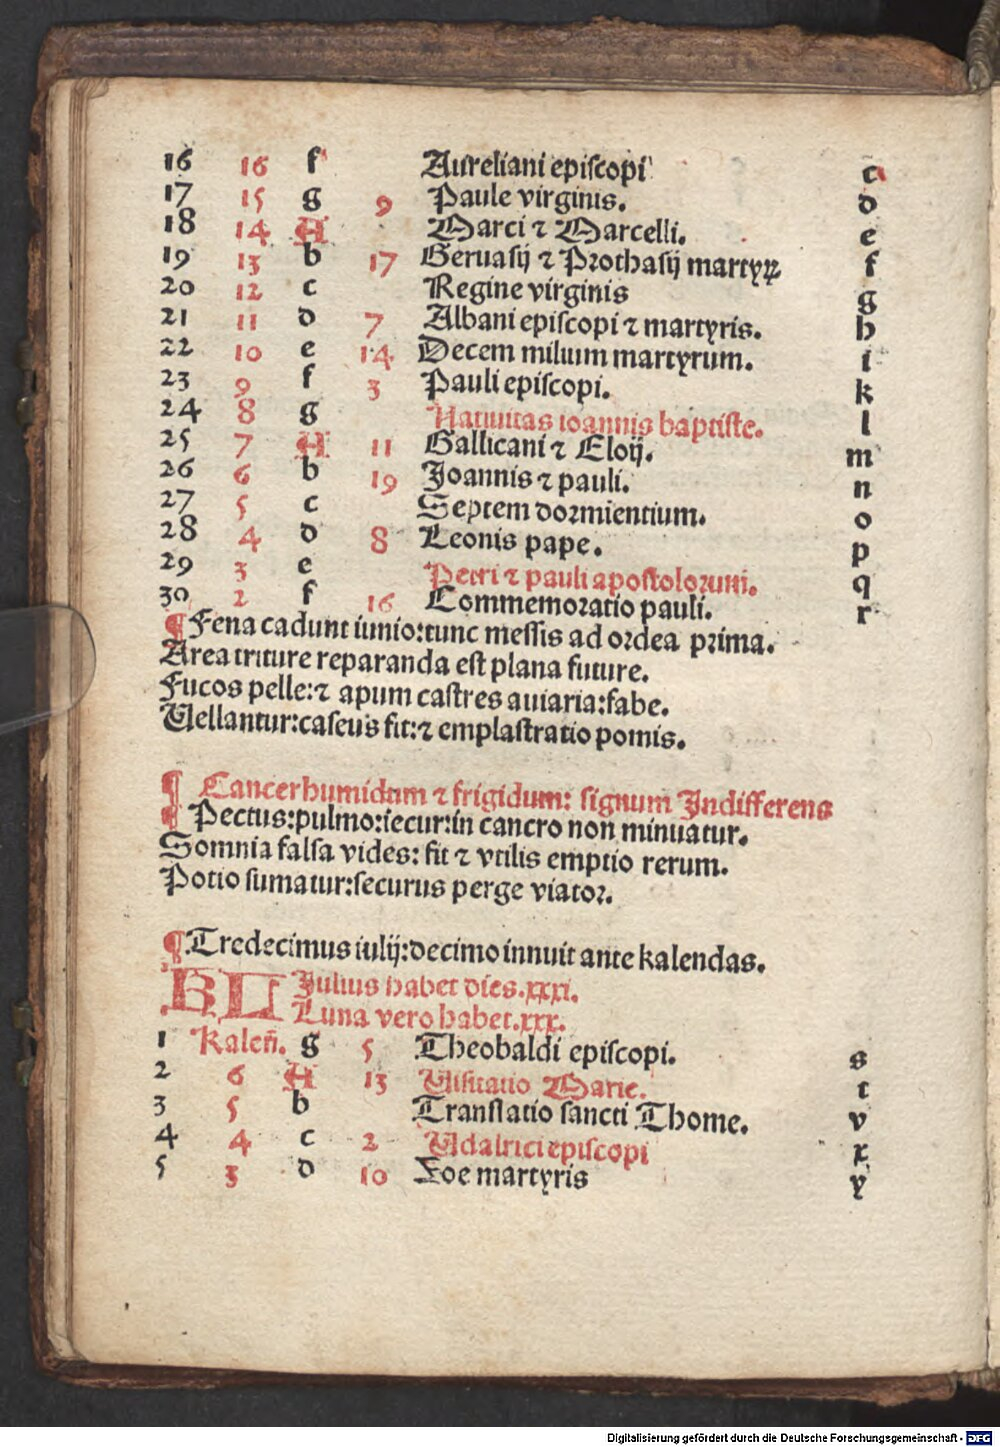 16 16 f Aureliani episcopi c
17 15 g 9 Paule virginis. d
18 14 A Marci ⁊ Marcelli. e
19 13 b 17 Geruasij ⁊ Prothasij martyꝝ f
20 12 c Regine virginis g
21 11 d 7 Albani episcopi ⁊ martyris. h
22 10 e 14 Decem milium martyrum. i
23 9 f 3 Pauli episcopi. k
24 8 g Natiuitas ioannis baptiste. l
25 7 A 11 Gallicani ⁊ Eloij. m
26 6 b 19 Joannis ⁊ pauli. n
27 5 c Septem dormientium. o
28 4 d 8 Leonis pape. p
29 3 e Petri ⁊ pauli apostolorum. q
30 2 f 16 Commemoratio pauli. r
¶ Fena cadunt iunio:tunc messis ad ordea prima.
Area triture reparanda est plana future.
Fucos pelle:⁊ apum castres auiaria:fabe.
Uellantur:caseus fit:⁊ emplastratio pomis.
¶ Cancer humidum ⁊ frigidum: signum Indifferens
¶ Pectus:pulmo:iecur:in cancro non minuatur.
Somnia falsa vides: fit ⁊ vtilis emptio rerum.
Potio sumatur:securus perge viator.
¶ Tredecimus iulij:decimo innuit ante kalendas.
KL Julius habet dies.xxxi.
Luna vero habet.xxx.
1 Kaleñ. g 5 Theobaldi episcopi. s
2 6 A 13 Uisitatio Marie. t
3 5 b Translatio sancti Thome. v
4 4 c 2 Udalrici episcopi x
5 3 d 10 Zoe martyris y
Digitalisierung gefördert durch die Deutsche Forschungsgemeinschaft - DFG